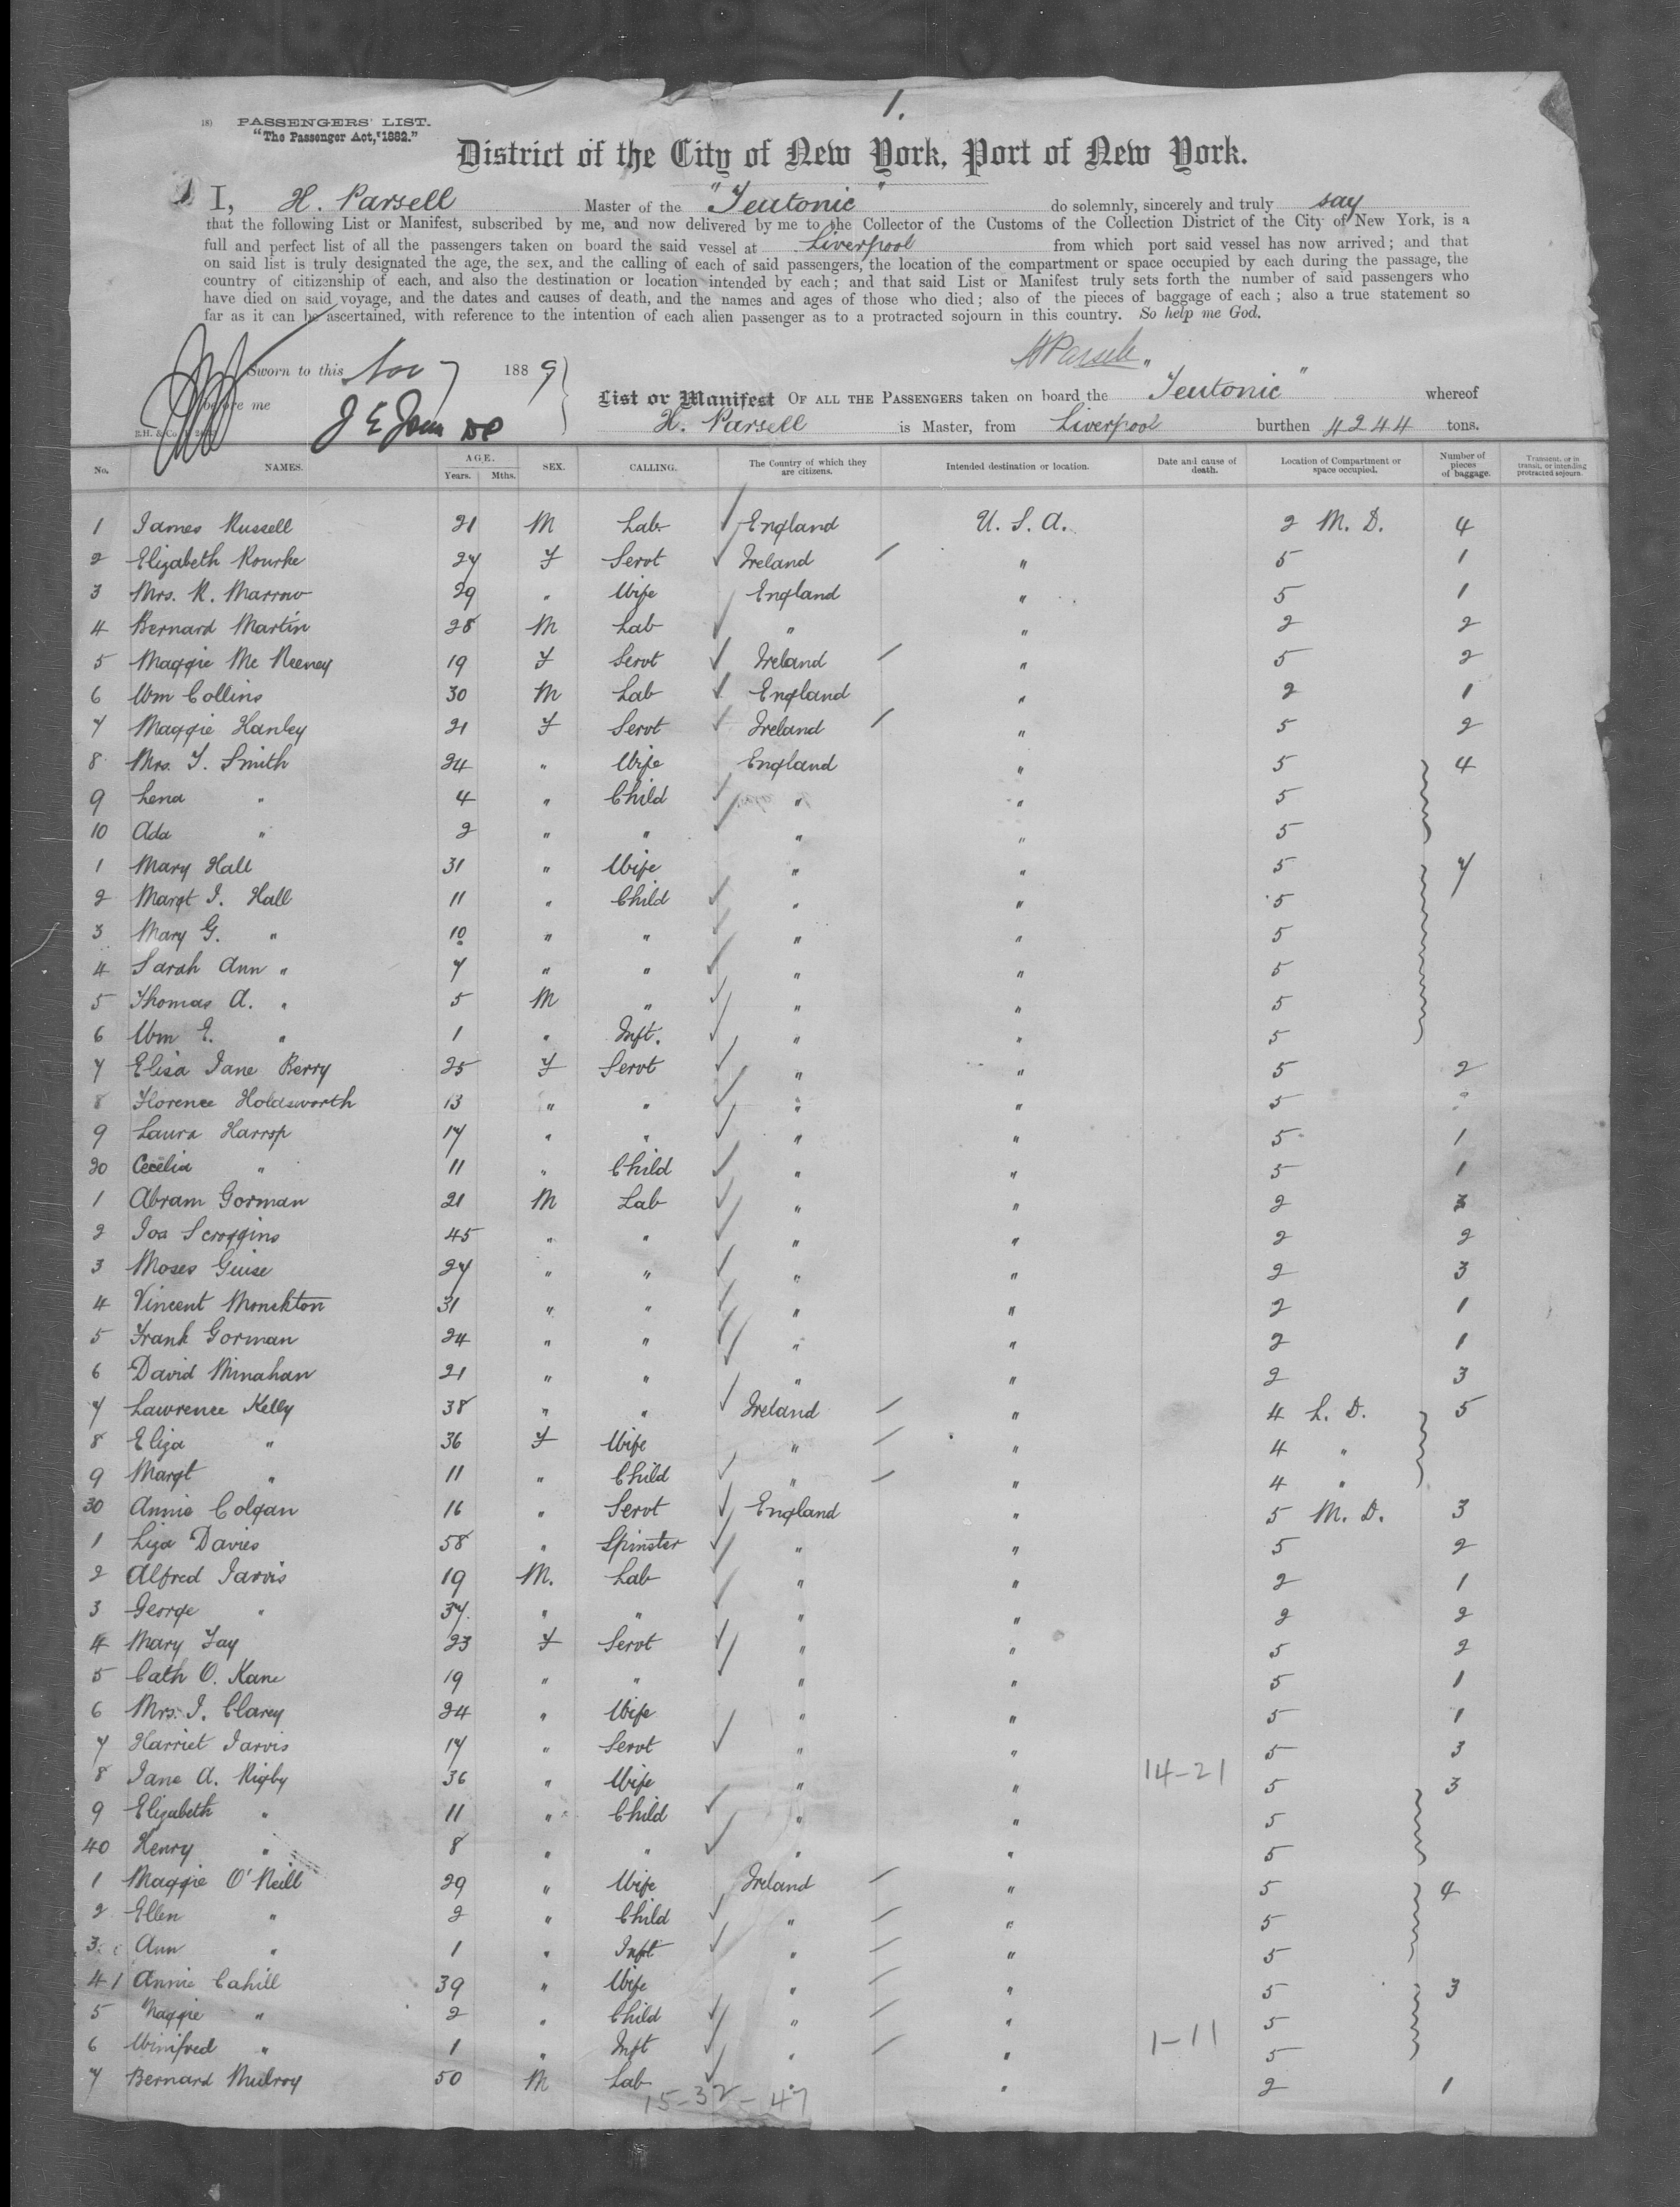 1.
18) PASSENGERS' LIST.
"The Passenger Act, 1882."
District of the City of New York, Port of New York.
1 I, H. Parsell Master of the "Teutonic" do solemnly, sincerely and truly say
that the following List or Manifest, subscribed by me, and now delivered by me to the Collector of the Customs of the Collection District of the City of New York, is a
full and perfect list of all the passengers taken on board the said vessel at Liverpool from which port said vessel has now arrived; and that
on said list is truly designated the age, the sex, and the calling of each of said passengers, the location of the compartment or space occupied by each during the passage, the
country of citizenship of each, and also the destination or location intended by each; and that said List or Manifest truly sets forth the number of said passengers who
have died on said voyage, and the dates and causes of death, and the names and ages of those who died; also of the pieces of baggage of each; also a true statement so
far as it can be ascertained, with reference to the intention of each alien passenger as to a protracted sojourn in this country. So help me God.
H Parsell
Sworn to this Nov 7 1889
before me
List or Manifest OF ALL THE PASSENGERS taken on board the "Teutonic" whereof
H. Parsell is Master, from Liverpool burthen 4244 tons.
No. NAMES. AGE. Years. Mths. SEX. CALLING. The Country of which they are citizens. Intended destination or location. Date and cause of death. Location of Compartment or space occupied. Number of pieces of baggage. Transient, or in transit, or intending protracted sojourn
1 James Russell 21 M Lab England U. S. A. 2 M. D. 4
2 Elizabeth Rourke 27 F Servt Ireland " 5 1
3 Mrs. R. Marrow 29 " Wife England " 5 1
4 Bernard Martin 28 M Lab " " 2 2
5 Maggie Mc Neeney 19 F Servt Ireland " 5 2
6 Wm Collins 30 M Lab England " 2 1
7 Maggie Hanley 21 F Servt Ireland " 5 2
8 Mrs. T. Smith 24 " Wife England " 5 4
9 Lena " 4 " Child " " 5
10 Ada " 2 " " " " 5
1 Mary Hall 31 " Wife " " 5 7
2 Margt J. Hall 11 " Child " " 5
3 Mary G. " 10 " " " " 5
4 Sarah Ann " 7 " " " " 5
5 Thomas A. " 5 M " " " 5
6 Wm E. " 1 " Inft. " " 5
7 Elisa Jane Berry 25 F Servt " " 5 2
8 Florence Holdsworth 13 " " " " 5
9 Laura Harrop 17 " " " " 5 1
20 Cecelia " 11 " Child " " 5 1
1 Abram Gorman 21 M Lab " " 2 3
2 Jos Scroggins 45 " " " " 2 2
3 Moses Guise 27 " " " " 2 3
4 Vincent Monckton 31 " " " " 2 1
5 Frank Gorman 24 " " " " 2 1
6 David Minahan 21 " " " " 2 3
7 Lawrence Kelly 38 " " Ireland " 4 L. D. 5
8 Eliza " 36 F Wife " " 4 "
9 Margt " 11 " Child " " 4 "
30 Annie Colgan 16 " Servt England " 5 M. D. 3
1 Liza Davies 58 " Spinster " " 5 2
2 Alfred Jarvis 19 M. Lab " " 2 1
3 George " 37 " " " " 2 2
4 Mary Fay 23 F Servt " " 5 2
5 Cath O. Kane 19 " " " " 5 1
6 Mrs. J. Clarey 24 " Wife " " 5 1
7 Harriet Jarvis 17 " Servt " " 5 3
8 Jane A. Rigby 36 " Wife " " 14-21 5 3
9 Elizabeth " 11 " Child " " 5
40 Henry " 8 " " " " 5
1 Maggie O'Neill 29 " Wife Ireland " 5 4
2 Ellen " 2 " Child " " 5
3 Ann " 1 " Inft " " 5
4 Annie Cahill 39 " Wife " " 5 3
5 Maggie " 2 " Child " " 5
6 Winifred " 1 " Inft " " 1-11 5
7 Bernard Mulroy 50 M Lab " " 2 1
15-32-47